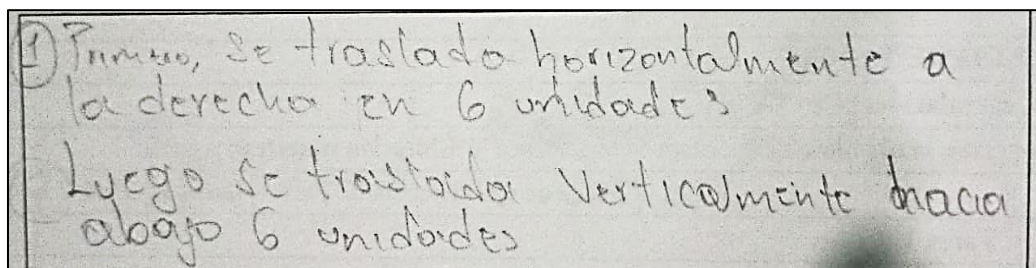 ① Primero, se traslada horizontalmente a
la derecha en 6 unidades
Luego se traslada verticalmente hacia
abajo 6 unidades